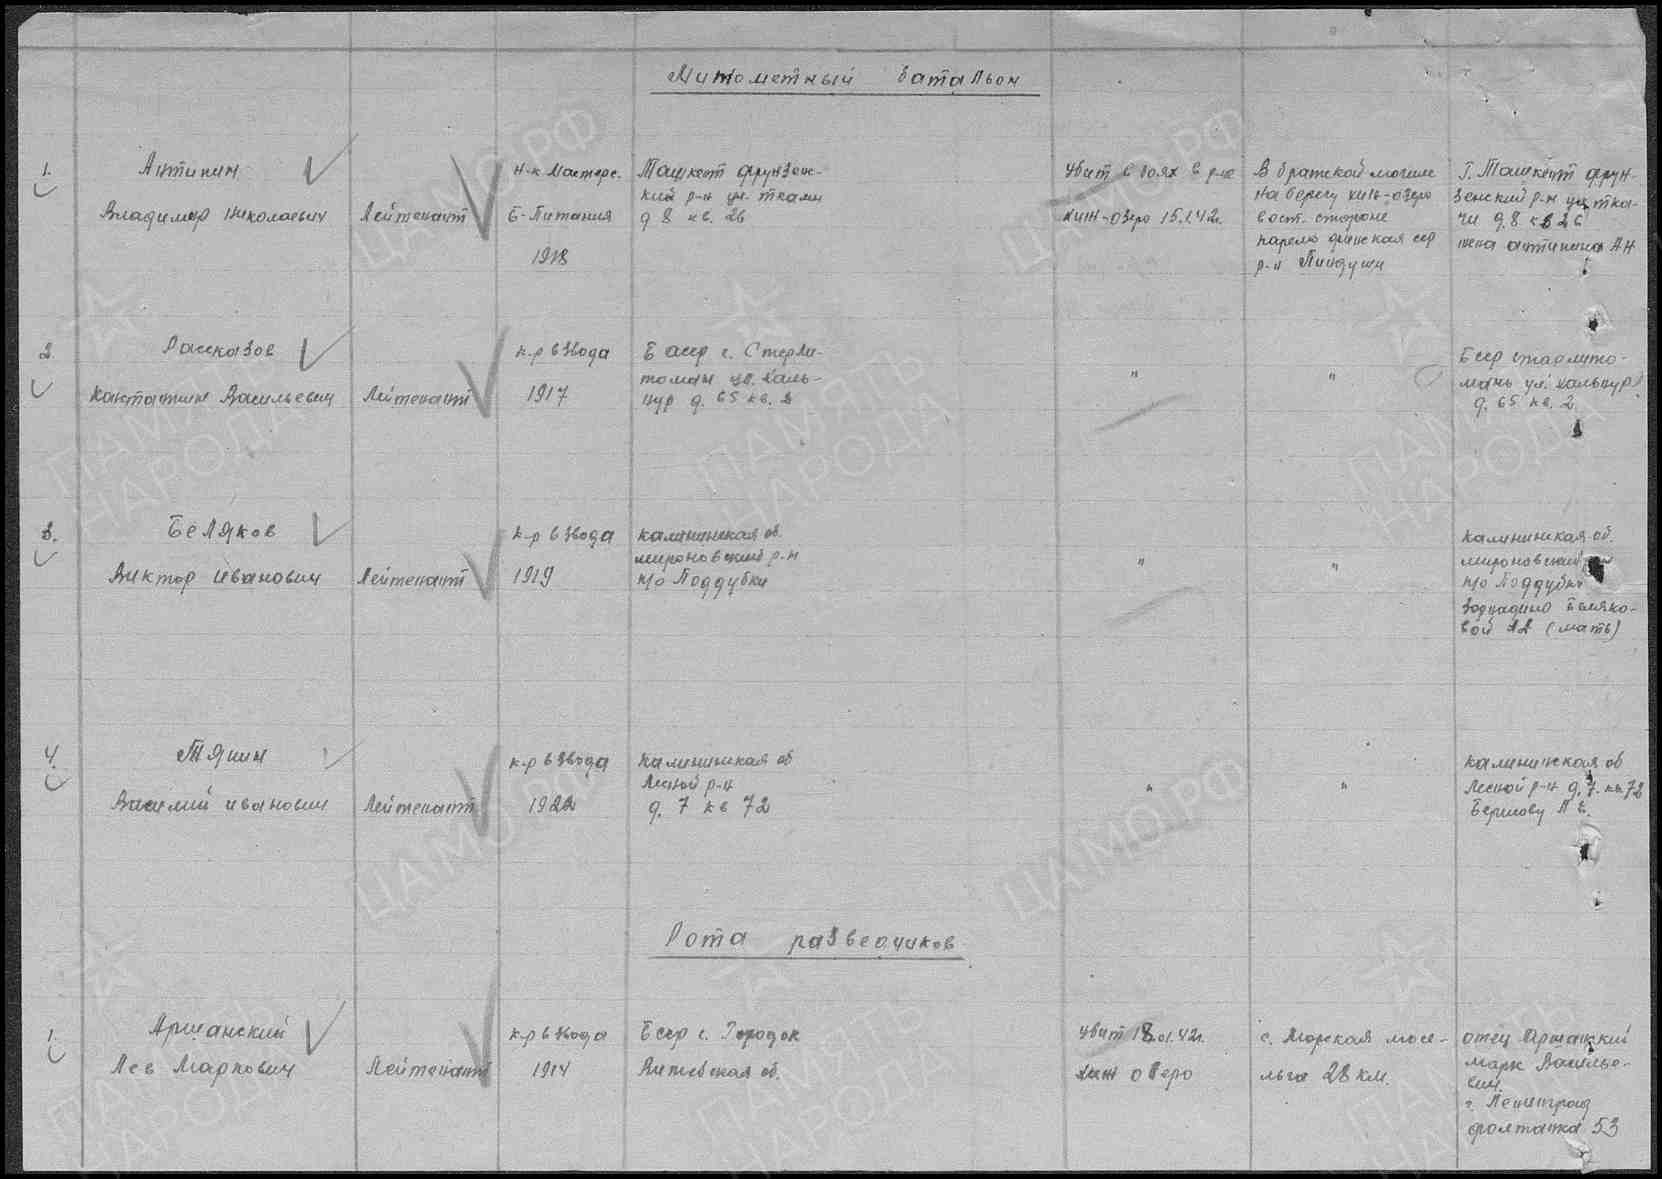 Минометный батальон
1. Антипин
Владимир Николаевич
Лейтенант
н-к Мастерс.
Б-Питания
1918
Ташкент Фрунзен-
кий р-н ул. ткачи
д 8 кв. 26
убит в боях в р-не
хиж-озеро 15.1.42г.
В братской могиле
на берегу хиж-озеро
вост. стороне
карело финская сср
р-н Пиндуши
Г. Ташкент фрун-
зенский р-н ул тка-
чи д. 8 кв 26
жена антипина АН
2. Рассказов
Константин Васильевич
Лейтенант
к-р взвода
1917
Б асср г. Стерли-
томан ул. халь-
нур д. 65 кв. 2
"
"
Бсср старлито-
мань ул. хальнур
д. 65 кв. 2
3. Беляков
Виктор Иванович
Лейтенант
к-р взвода
1919
калининская об.
мироновский р-н
п/о Поддубки
"
"
калининская об.
мироновский
п/о Поддубки
Беляко-
вой (мать)
4. Тянин
Василий иванович
Лейтенант
к-р взвода
1922
калининская об
Лесной р-н
д. 7 кв 72
"
"
калининская об
Лесной р-н д. 7. кв 72
Рота разведчиков
1. Аршанский
Лев Маркович
Лейтенант
к-р взвода
1914
Бсср г. Городок
Витебская об.
убит 18.01.42г.
хиж озеро
с. Морская мосе-
льга 28 км.
отец Аршанский
марк Василье-
вич.
г. Ленинград
фонтанка 53
ЦАМО.РФ
ПАМЯТЬ
НАРОДА